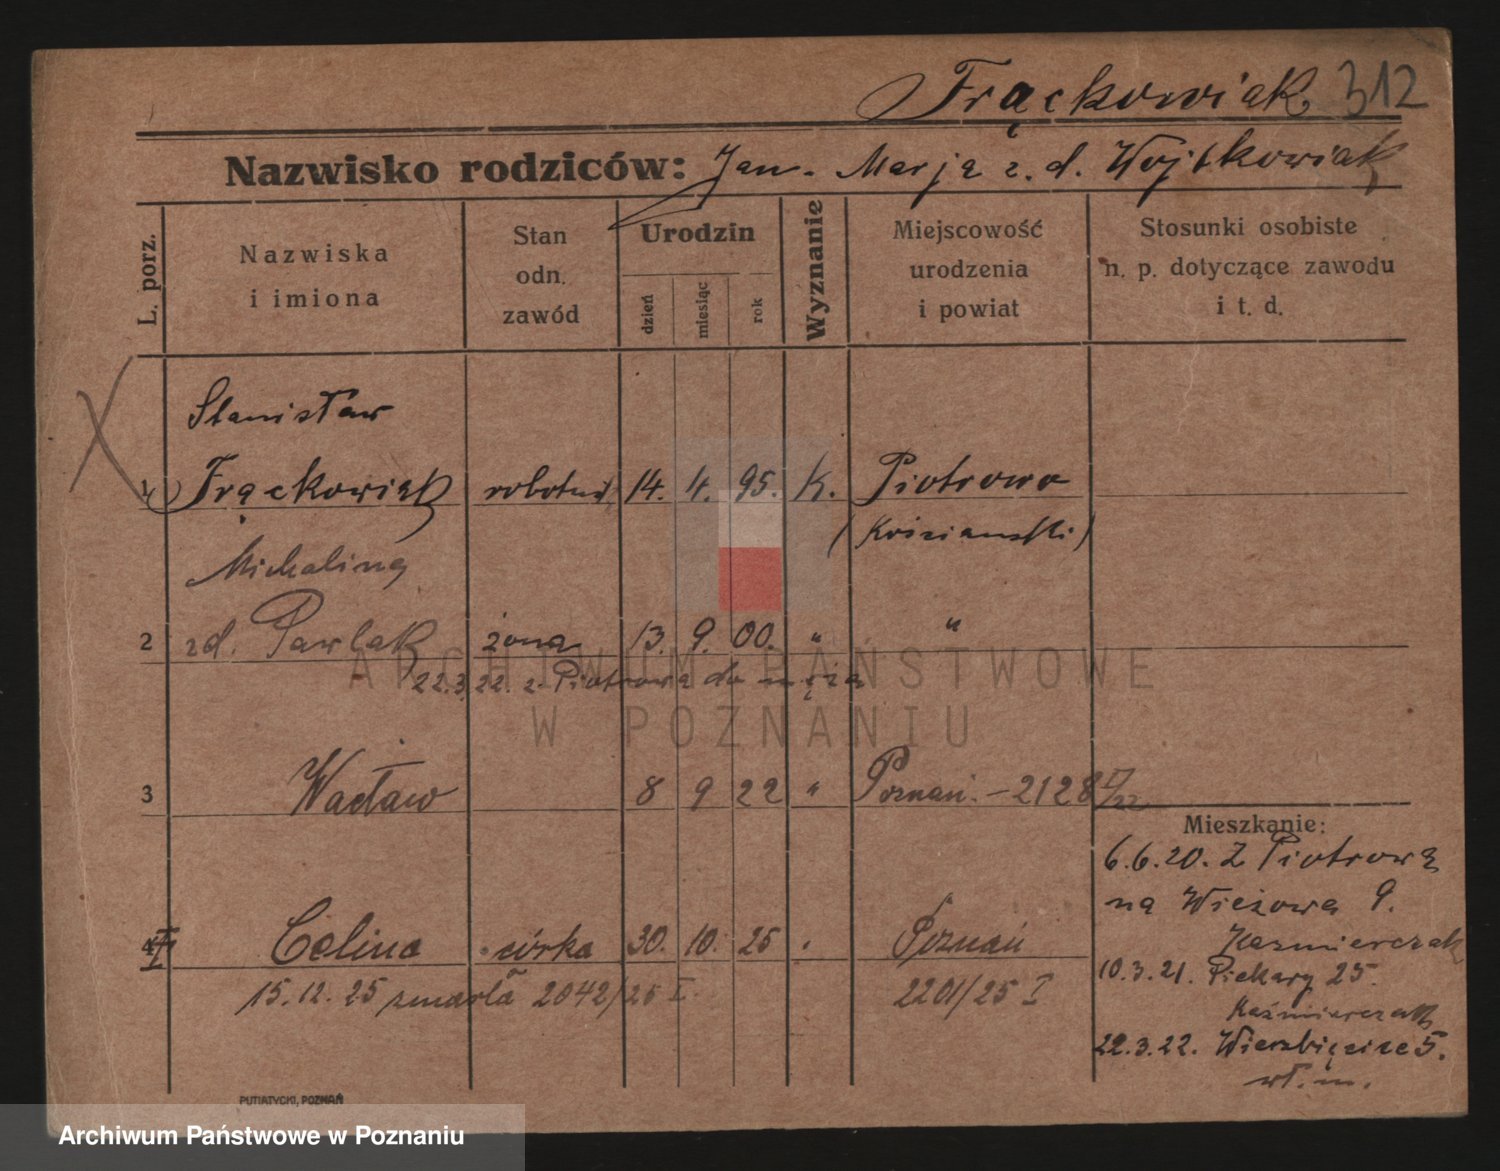 Frąckowiak 312
Nazwisko rodziców: Jan. Marja z. d. Wojtkowiak
L. porz.
Nazwiska
i imiona
Stan
odn.
zawód
Urodzin
dzień
miesiąc
rok
Wyznanie
Miejscowość
urodzenia
i powiat
Stosunki osobiste
n. p. dotyczące zawodu
i t. d.
Stanisław
1 Frąckowiak robotnik 14. 4. 95. k. Piotrowo
(Kościański)
Michalina
2 zd. Pawlak żona 13. 9. 00. " "
22.3.22. z Piotrowa do męża
3 Wacław 8 9 22 " Poznań. – 2128
4 Celina córka 30. 10. 25 Poznań
15.12.25 zmarła 2042/25 I. 2201/25 I
Mieszkanie:
6.6.20. Z Piotrowa
na Wieżowa 9.
Kazmierczak
10.3.21. Piekary 25.
Kaźmierczak
22.3.22. Wierzbięcice 5.
wł. m.
PUTIATYCKI, POZNAŃ
ARCHIWUM PAŃSTWOWE
W POZNANIU
Archiwum Państwowe w Poznaniu